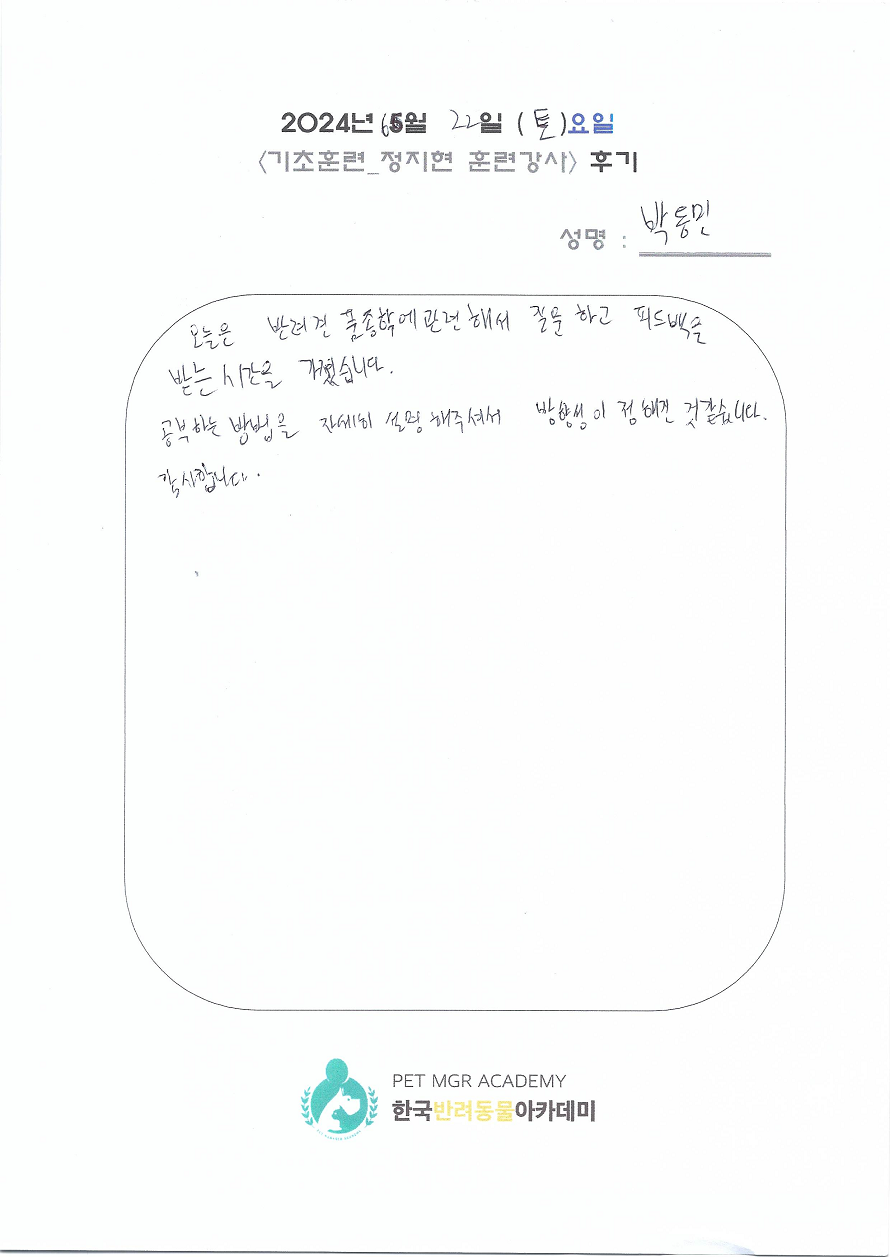 2024년 6월 22일 (토)요일
〈기초훈련_정지현 훈련강사〉 후기
성명 : 박동민
오늘은 반려견 품종학에 관련해서 질문하고 피드백을
받는 시간을 가졌습니다.
공부하는 방법을 자세히 설명해주셔서 방향성이 정해진 것같습니다.
감사합니다.
PET MGR ACADEMY
한국반려동물아카데미